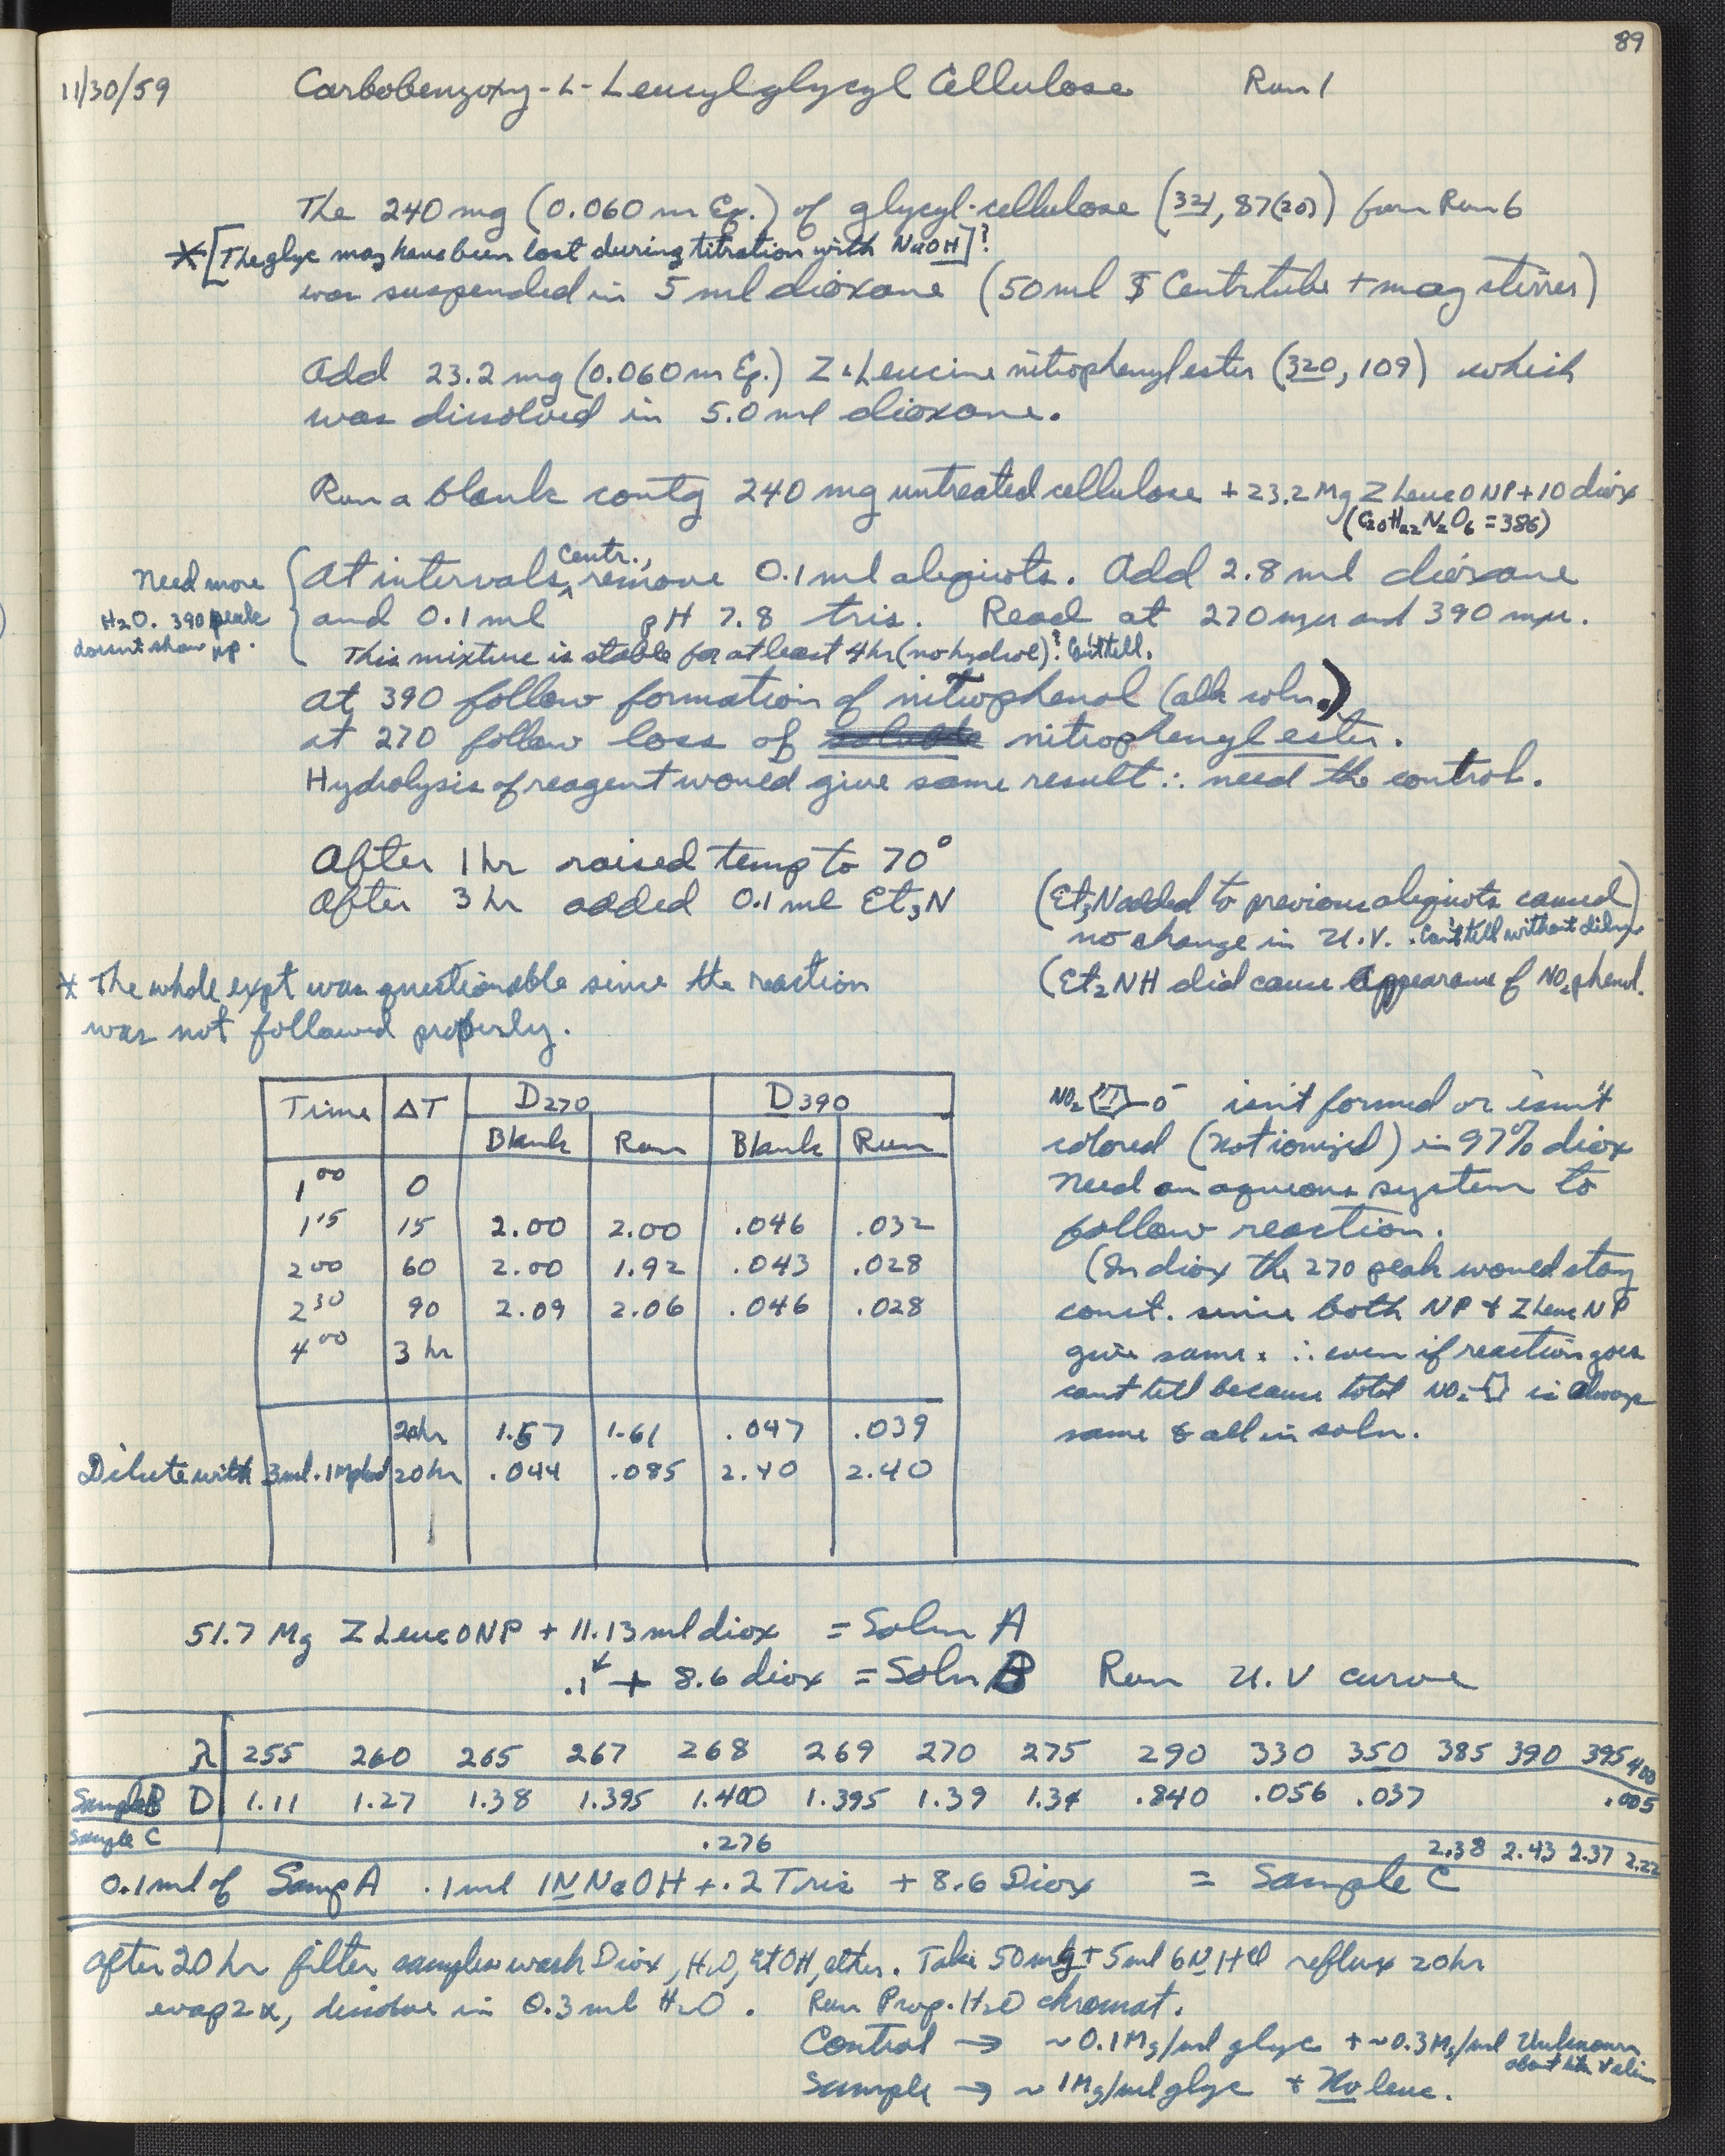 89
11/30/59 Carbobenzoxy-L-Leucylglycyl Cellulose Run 1
The 240 mg (0.060 m Eq.) of glycyl-cellulose (321, 87(20)) from Run 6
*[The glyc may have been lost during titration with NaOH]?
was suspended in 5 ml dioxane (50 ml $ Centr tube + mag stirrer)
Add 23.2 mg (0.060 m Eq.) Z-Leucine nitrophenylester (320, 109) which
was dissolved in 5.0 ml dioxane.
Run a blank contg 240 mg untreated cellulose + 23.2 Mg Z Leuc ONP + 10 diox
(C20H22N2O6 = 386)
Need more
H2O. 390 peak
doesn't show up.
At intervals, centr., remove 0.1 ml aliquots. Add 2.8 ml dioxane
and 0.1 ml pH 7.8 tris. Read at 270 mµ and 390 mµ.
This mixture is stable for at least 4 hr (no hydrol)? Can't tell.
at 390 follow formation of nitrophenol (alk soln.)
at 270 follow loss of soluble nitrophenyl ester.
Hydrolysis of reagent would give same result ∴ need the control.
After 1 hr raised temp to 70°
After 3 hr added 0.1 ml Et3N
(Et3N added to previous aliquots caused)
no change in U.V. . Can't tell without diln
(Et2NH did cause appearance of NO2 phenol.
* The whole expt was questionable since the reaction
was not followed properly.
Time ΔT D270 D390
Blank Run Blank Run
1 00 0
1 15 15 2.00 2.00 .046 .032
2 00 60 2.00 1.92 .043 .028
2 30 90 2.09 2.06 .046 .028
4 00 3 hr
20 hr 1.57 1.61 .047 .039
Dilute with 3 ml .1M phos 20 hr .044 .085 2.40 2.40
NO2 O- isn't formed or isn't
colored (not ionized) in 97% diox
Need an aqueous system to
follow reaction.
(In diox the 270 peak would stay
const. since both NP & Z Leuc NP
give same. ∴ even if reaction goes
cant tell because total NO2 is always
same & all in soln.
51.7 Mg Z Leuc ONP + 11.13 ml diox = Soln A
.1 + 8.6 diox = Soln B Run U.V curve
λ 255 260 265 267 268 269 270 275 290 330 350 385 390 395 400
Sample B D 1.11 1.27 1.38 1.395 1.400 1.395 1.39 1.34 .840 .056 .037 .005
Sample C .276 2.38 2.43 2.37 2.22
0.1 ml of Samp A .1 ml 1N NaOH + .2 Tris + 8.6 Diox = Sample C
after 20 hr filter samples wash Diox, H2O, EtOH, ether. Take 50 mg + 5 ml 6N HCl reflux 20 hr
evap 2x, dissolve in 0.3 ml H2O. Run Prop. H2O chromat.
Control → ~0.1 Mg/ml glyc + ~0.3 Mg/ml Unknown
Sample → ~1 Mg/ml glyc + No leuc.